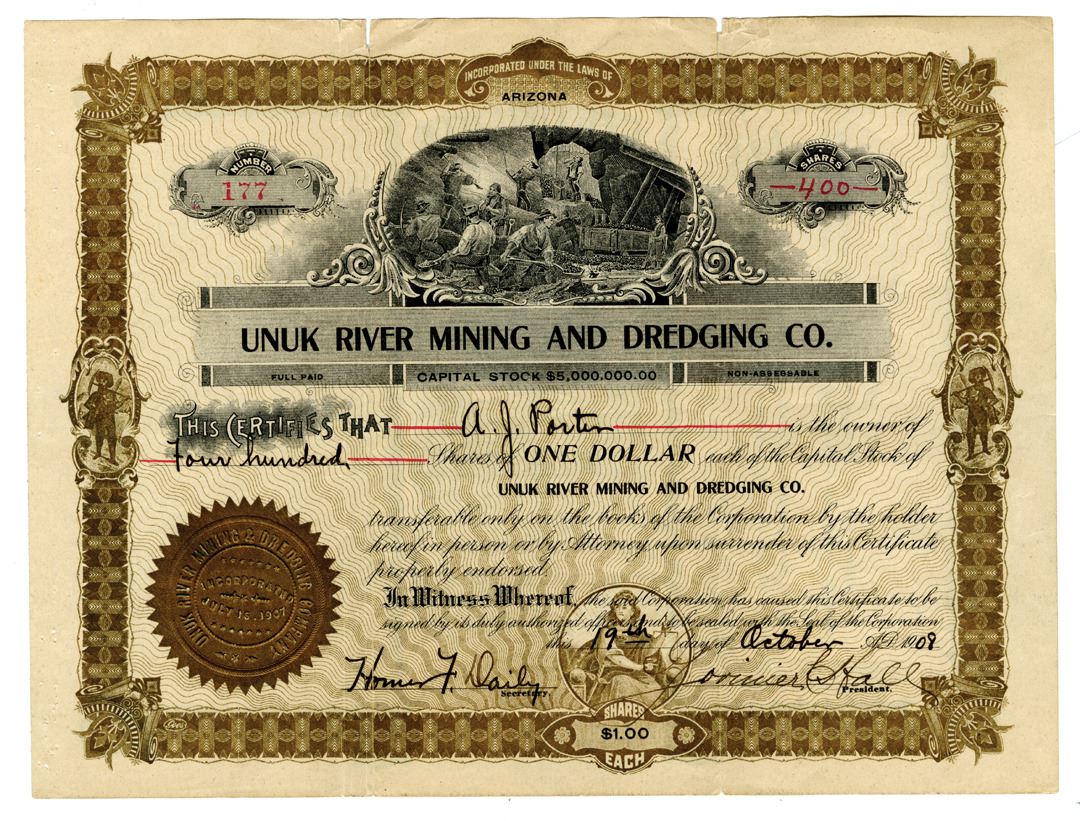 INCORPORATED UNDER THE LAWS OF
ARIZONA
NUMBER
177
SHARES
—400—
UNUK RIVER MINING AND DREDGING CO.
FULL PAID
CAPITAL STOCK $5,000,000.00
NON-ASSESSABLE
THIS CERTIFIES THAT A. J. Porter is the owner of
Four hundred Shares of ONE DOLLAR each of the Capital Stock of
UNUK RIVER MINING AND DREDGING CO.
transferable only on the books of the Corporation by the holder
hereof in person or by Attorney upon surrender of this Certificate
properly endorsed.
In Witness Whereof, the said Corporation has caused this Certificate to be
signed by its duly authorized officers and to be sealed with the Seal of the Corporation
this 19th day of October A.D. 1908
UNUK RIVER MINING & DREDGING COMPANY
INCORPORATED
JULY 15, 1907
Homer F. Daily
Secretary.
Hall
President.
SHARES
$1.00
EACH